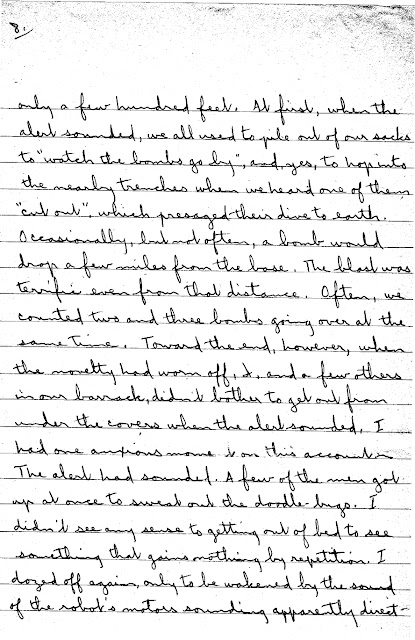 8.
only a few hundred feet. At first, when the
alert sounded, we all used to pile out of our sacks
to "watch the bombs go by", and, yes, to hop into
the nearby trenches when we heard one of them
"cut out", which presaged their dive to earth.
Occasionally, but not often, a bomb would
drop a few miles from the base. The blast was
terrific even from that distance. Often, we
counted two and three bombs going over at the
same time. Toward the end, however, when
the novelty had worn off, I, and a few others
in our barrack, didn't bother to get out from
under the covers when the alert sounded. I
had one anxious moment on this account.
The alert had sounded. A few of the men got
up at once to sweat out the doodle-bugs. I
didn't see any sense to getting out of bed to see
something that gains nothing by repetition. I
dozed off again, only to be wakened by the sound
of the robot's motors sounding apparently direct-